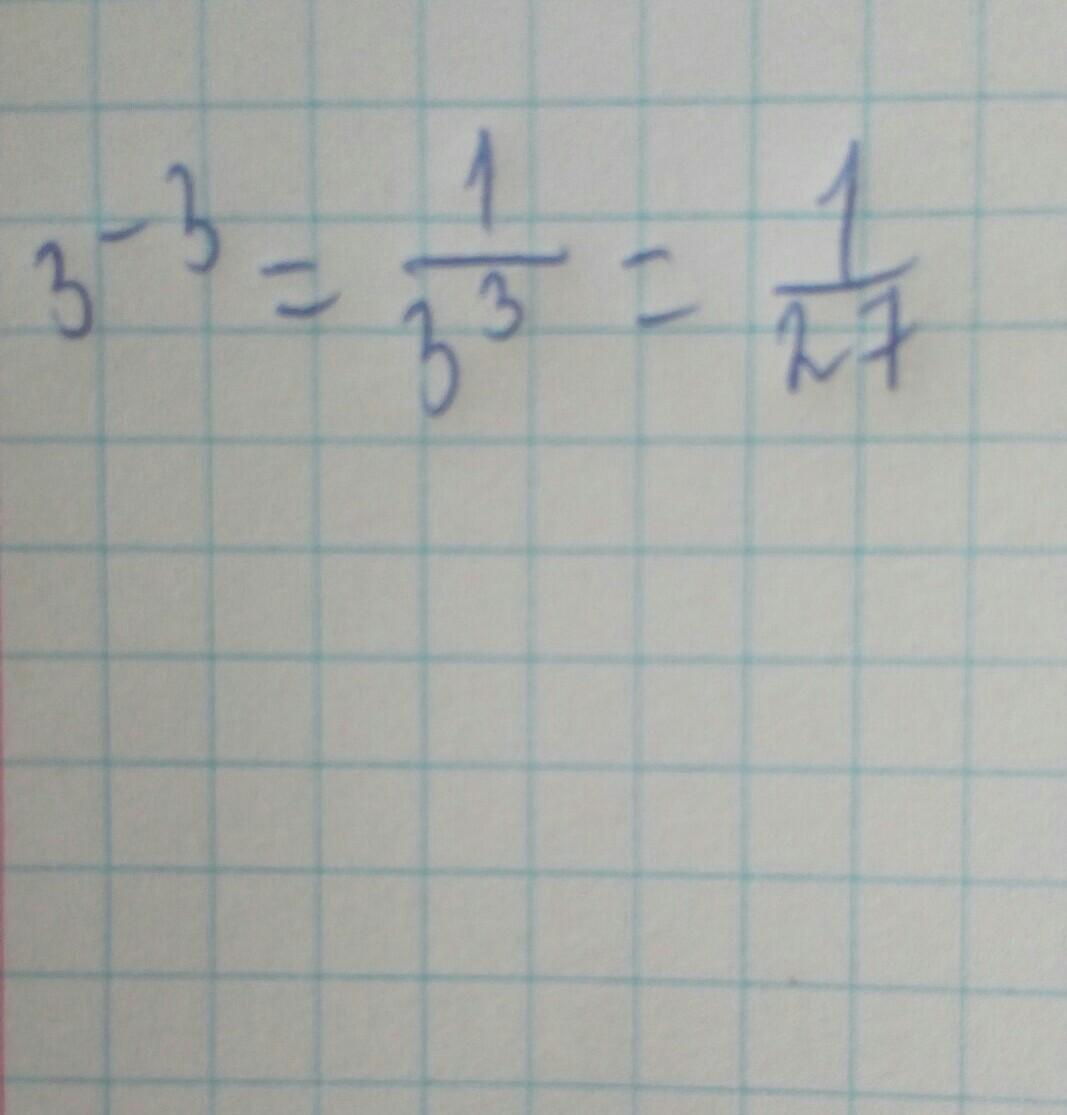 3⁻³ = 1/3³ = 1/27